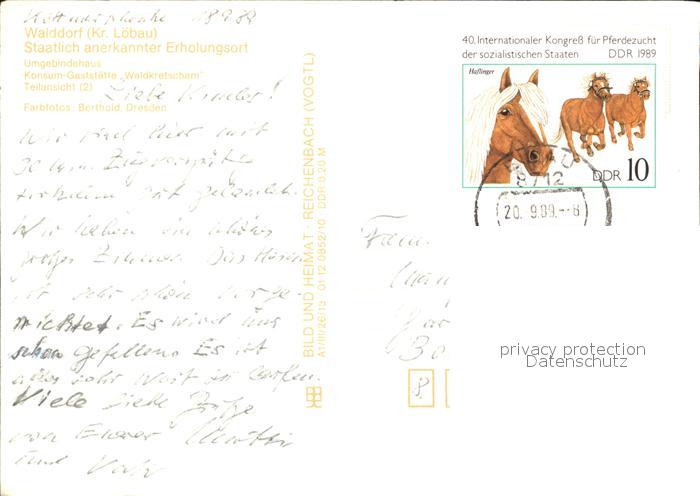 18.9.89
Walddorf (Kr. Löbau)
Staatlich anerkannter Erholungsort
Umgebindehaus
Konsum-Gaststätte „Waldkretscham"
Teilansicht (2)
Farbfotos: Berthold, Dresden
Liebe Kinder!
Wir sind hier mit
30 Min. Zugverspätg.
trotzdem gut gelandet.
Wir haben ein schönes
großes Zimmer. Das Haus
ist sehr schön vorge-
richtet. Es wird uns
schon gefallen. Es ist
alles sehr weit zu laufen.
Viele liebe Grüße
von Eurer Mutti
und Vati
BILD UND HEIMAT · REICHENBACH (VOGTL)
A1/III/26/13 01 12 0852/10 DDR 0,20 M
40. Internationaler Kongreß für Pferdezucht
der sozialistischen Staaten DDR 1989
Haflinger
DDR 10
8712
20. 9.89.--8
Fam.
privacy protection
Datenschutz